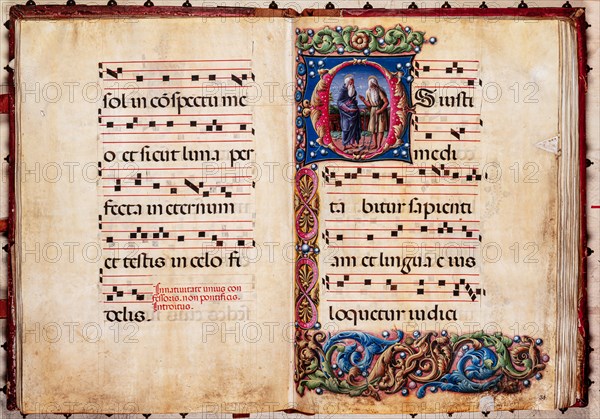 sol in cõspectu me
o et sicut luna per
fecta in eternum
et testis in celo fi
delis.
In natiuitate unius con
fessoris. non pontificis.
Introitus.
OS iusti
medi
ta bitur sapienti
am et lingua e ius
loquetur iudici